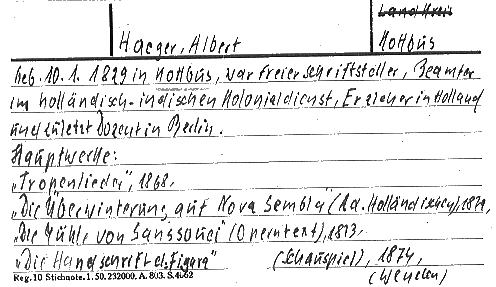 Land Kreis
Haeger, Albert
Kottbus
Geb. 10.1.1829 in Kottbus, war freier Schriftsteller, Beamter
im holländisch-indischen Kolonialdienst, Erzieher in Holland
und zuletzt Dozent in Berlin.
Hauptwerke:
„Tropenlieder", 1868.
„Die Überwinterung auf Nova Sembla" (Ad. Holländischen) 1872,
„Die Mühle von Sanssouci" (Operntext), 1873.
„Die Handschrift d. Figura" (Schauspiel), 1874,
(Wenden)
Reg. 10 Stichnote. 1. 50. 232000. A. 803. S. 4062